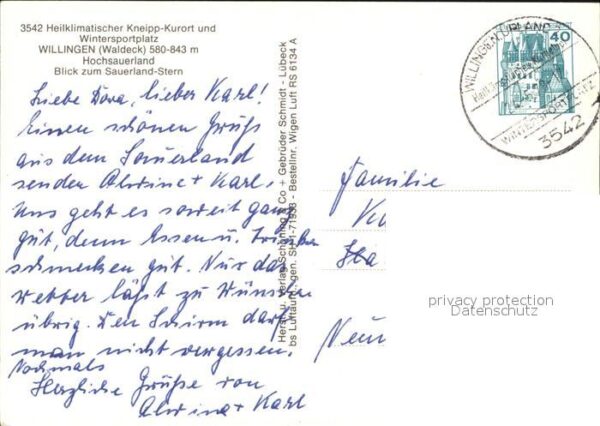 3542 Heilklimatischer Kneipp-Kurort und
Wintersportplatz
WILLINGEN (Waldeck) 580-843 m
Hochsauerland
Blick zum Sauerland-Stern
Liebe Dora, lieber Karl!
Einen schönen Gruß
aus dem Sauerland
senden Alwine + Karl.
Uns geht es soweit ganz
gut, denn Essen u. Trinken
schmecken gut. Nur das
Wetter läßt zu Wünschen
übrig. Den Schirm darf
man nicht vergessen.
Nochmals
Herzliche Grüße von
Alwine + Karl
Herst. u. Verlag Schöning & Co + Gebrüder Schmidt - Lübeck
bs Luftaufn., gen. SH - Bestellnr. Wigen Luft RS 6134 A
40
WILLINGEN, UPLAND
WINTERSPORTPLATZ
3542
Familie
privacy protection
Datenschutz